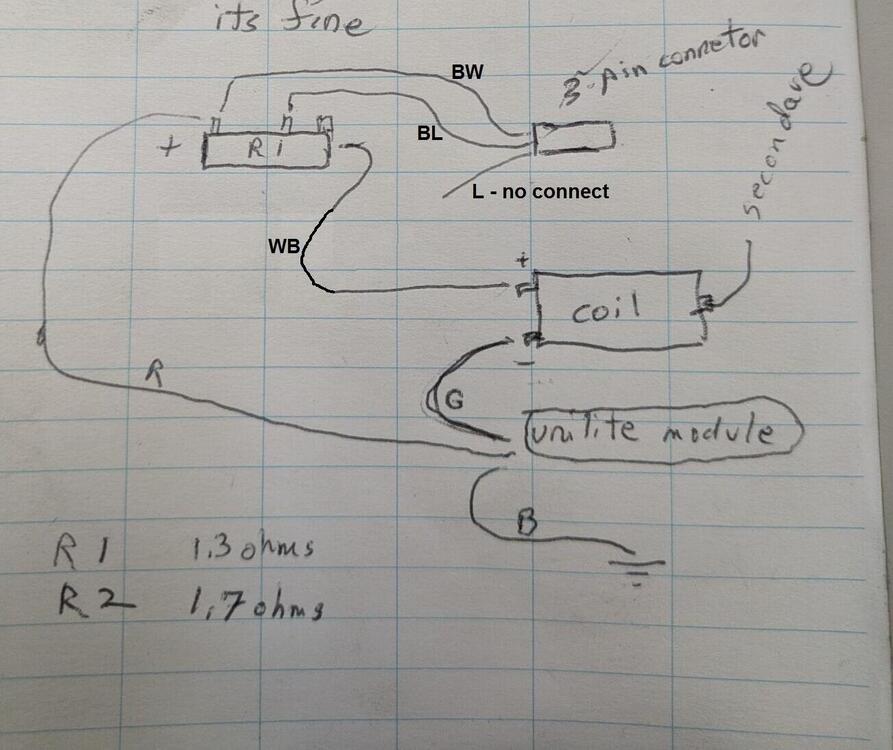 its fine
BW
3-pin connetor
BL
+
R 1
L - no connect
secondare
WB
+
coil
-
R
G
unilite module
B
R1 1.3 ohms
R2 1,7 ohms